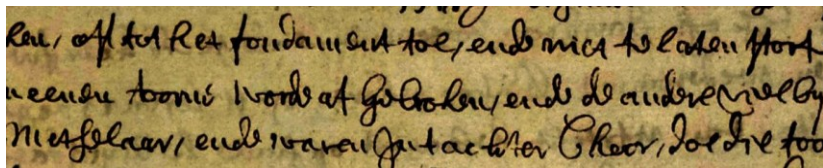 ken, oft tot het fondament toe, ende niet te laten stort
neenen toorne worde af gebroken, ende de andere viel by
Metselaar, ende waren Int achter Choor, doe die too